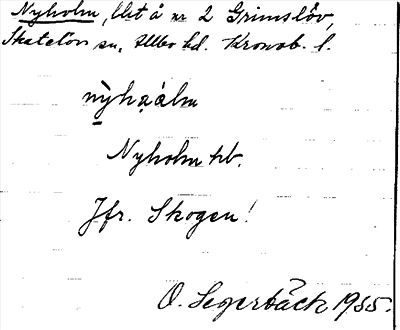 Nyholm, lht å nr 2 Grimslöv,
Skatelöv sn, Allbo hd. Kronob. l.
nỳhạálm
Nyholm hb.
Jfr. Skogen!
O. Segerbäck 1955.